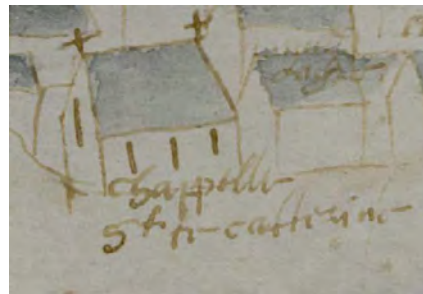 chappelle
St te catterine